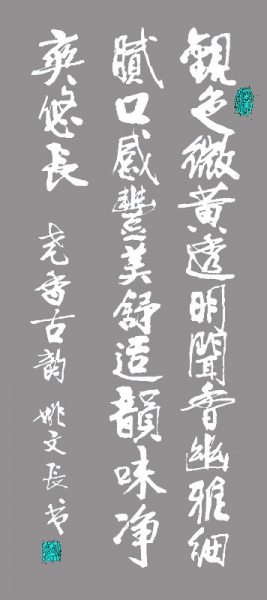 觀色微黃透明聞香幽雅細
膩口感豐美舒适韻味净
爽悠長
尧香古韵
姚文長书